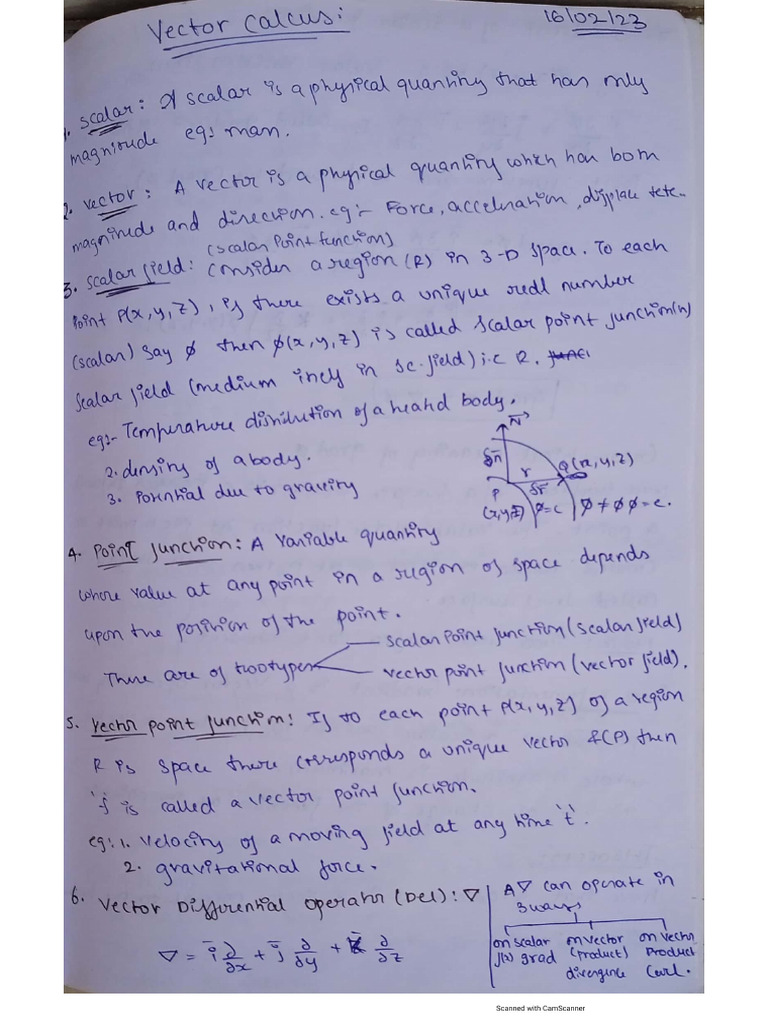 Vector Calcus:
16/02/23
1. Scalar: A scalar is a physical quantity that has only
magnitude eg: mass.
2. vector: A vector is a physical quantity which has both
magnitude and direction. eg:- Force, acceleration, displace tetc..
(scalar Point function)
3. Scalar field: Consider a region (R) in 3-D space. To each
Point P(x,y,z), if there exists a unique real number
(scalar) say ϕ then ϕ(x,y,z) is called scalar point function(n)
scalar field (medium in sc. field) i.e R.
eg:- Temperature distribution of a heated body.
2. density of a body.
3. Potential due to gravity
N̄
δn̄
r
Q(x,y,z)
P
δr̄
(x,y,z)
ϕ=c
ϕ+δϕ=c.
4. Point function: A variable quantity
whose value at any point in a region of space depends
upon the position of the point.
There are of two types
scalar Point function (scalar field)
vector point function (vector field).
5. vector point function: If to each point P(x,y,z) of a region
R is space there corresponds a unique vector f(P) then
'f' is called a vector point function.
eg: 1. velocity of a moving field at any time 't'.
2. gravitational force.
6. Vector Differential operator (Del): ∇
∇ = ī ∂/∂x + j̄ ∂/∂y + k̄ ∂/∂z
A ∇ can operate in
3 ways
on scalar f(x) grad
on vector (product) divergence
on vector Product Curl.
Scanned with CamScanner